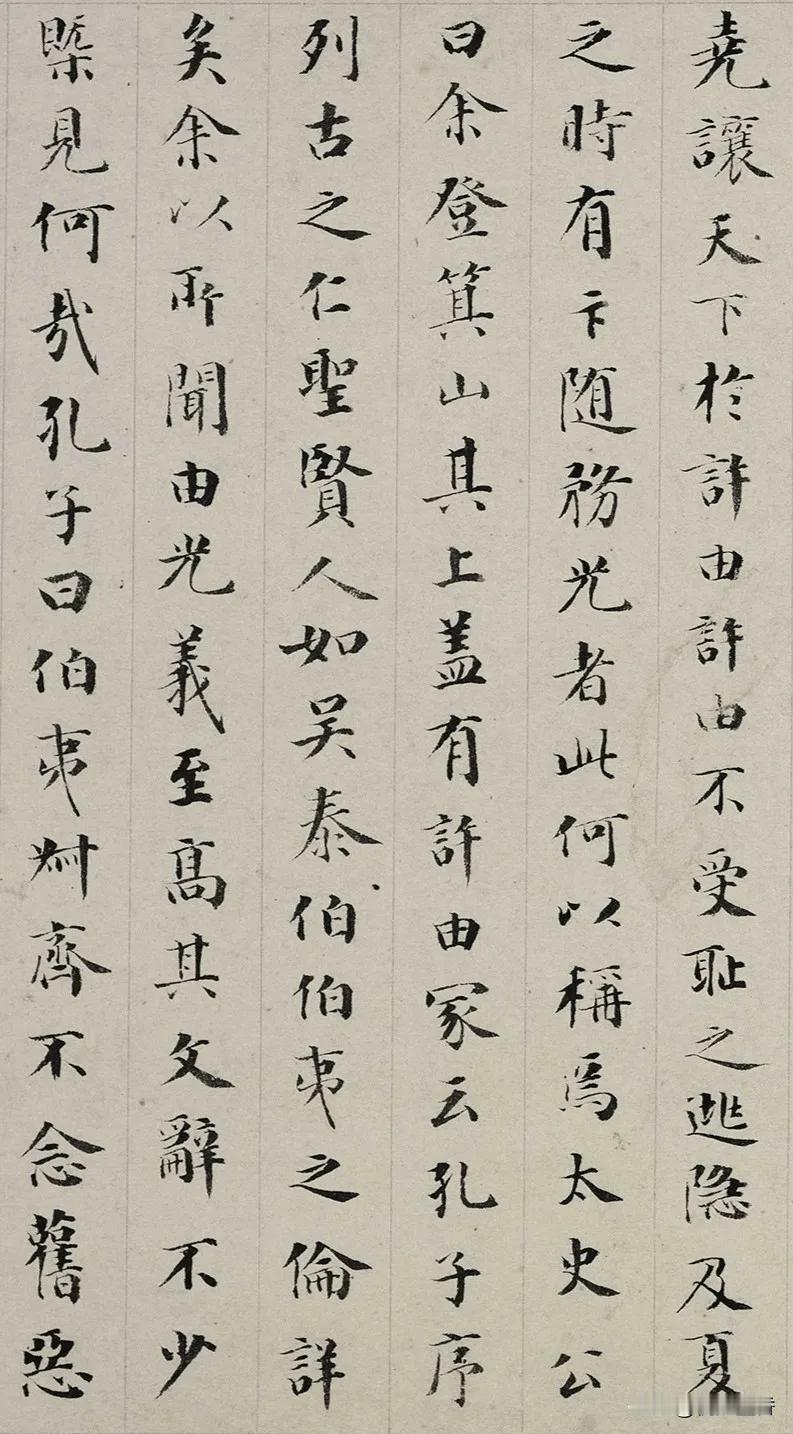 堯讓天下於許由許由不受耻之逃隱及夏
之時有卞随務光者此何以稱焉太史公
曰余登箕山其上盖有許由冢云孔子序
列古之仁聖賢人如吴泰伯伯夷之倫詳
矣余以所聞由光義至高其文辭不少
槩見何哉孔子曰伯夷叔齊不念舊惡